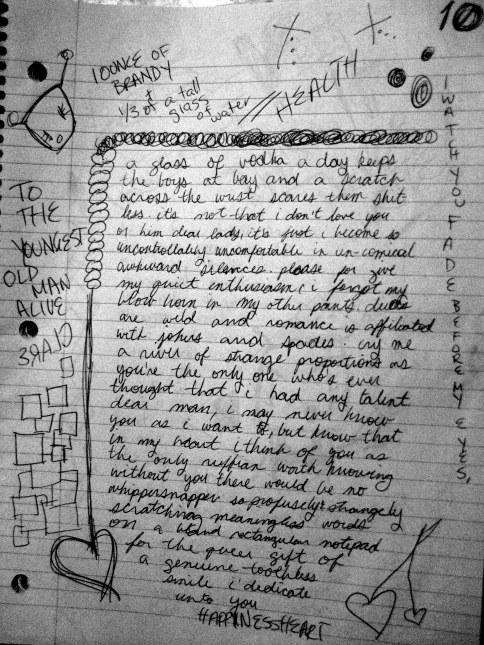 10
1 OUNCE OF
BRANDY
+
1/3 of a tall
glass
of water
// HEALTH
a glass of vodka a day keeps
the boys at bay and a scratch
across the wrist scares them shit
less. it's not that i don't love you
or him dear lady, it's just i become so
uncontrollably uncomfortable in un-comical
awkward silences. please for give
my quiet enthusiasm, i forgot my
blow horn in my other pants.
are wild and romance is affiliated
with johns and spades. cry me
a river of strange proportions as
you're the only one who's ever
thought that i had any talent
dear man, i may never know
you as i want to, but know that
in my heart i think of you as
the only ruffian worth knowing
without you there would be no
whippersnapper so profusely & strangely
scratching meaningless words
on a bland rectangular notepad
for the queer gift of
a genuine toothless
smile i dedicate
unto you
HAPPINESSHEART
TO
THE
YOUNGEST
OLD
MAN
ALIVE
CLARE
I WATCH YOU FADE BEFORE MY EYES,